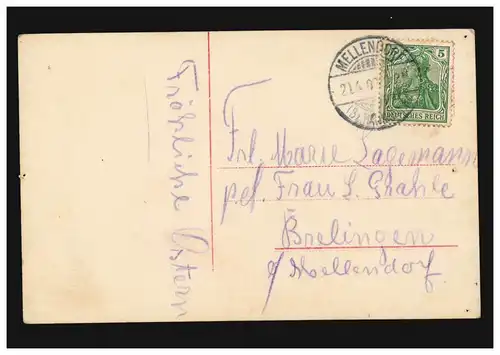 Fröhliche Ostern
MELLENDORF
5
DEUTSCHES REICH
Frl. Marie Lagemann
pel. Frau L. Grahle
Brelingen
b/Mellendorf